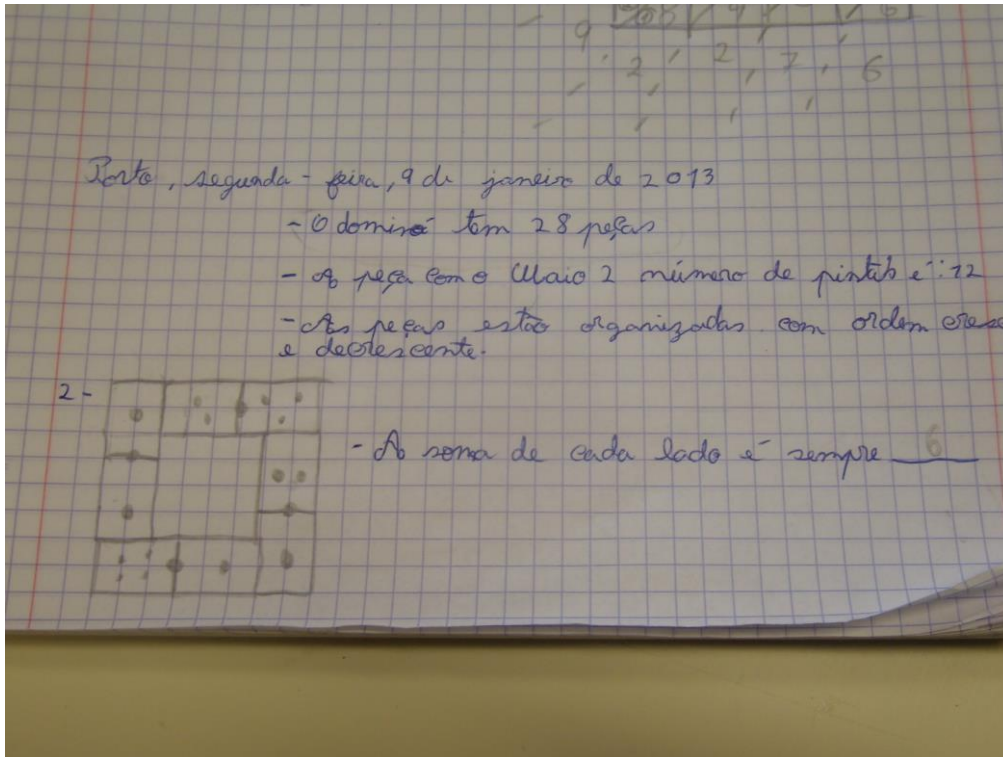 9
2 2 7 6
Porto, segunda-feira, 9 de janeiro de 2013
- O dominó tem 28 peças
- A peça com o Maio2 número de pintas é: 12
- As peças estão organizadas com ordem
e decrescente.
2-
- A soma de cada lado é sempre 6